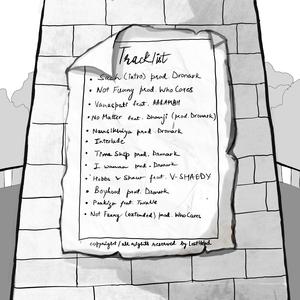 Tracklist
(intro) prod. Dromark
Not Funny prod. Who Cares
Vanaspati feat.
No Matter feat. Dhanji (prod. Dromark)
prod. Dromark
Interlude
Time Skip prod. Dromark
I wanna prod. Dromark
Hobbs & Shaw feat. V-SHAEDY
Boyhood prod. Dromark
feat.
Not Funny (extended) prod. Who Cares
copyright / all rights reserved by